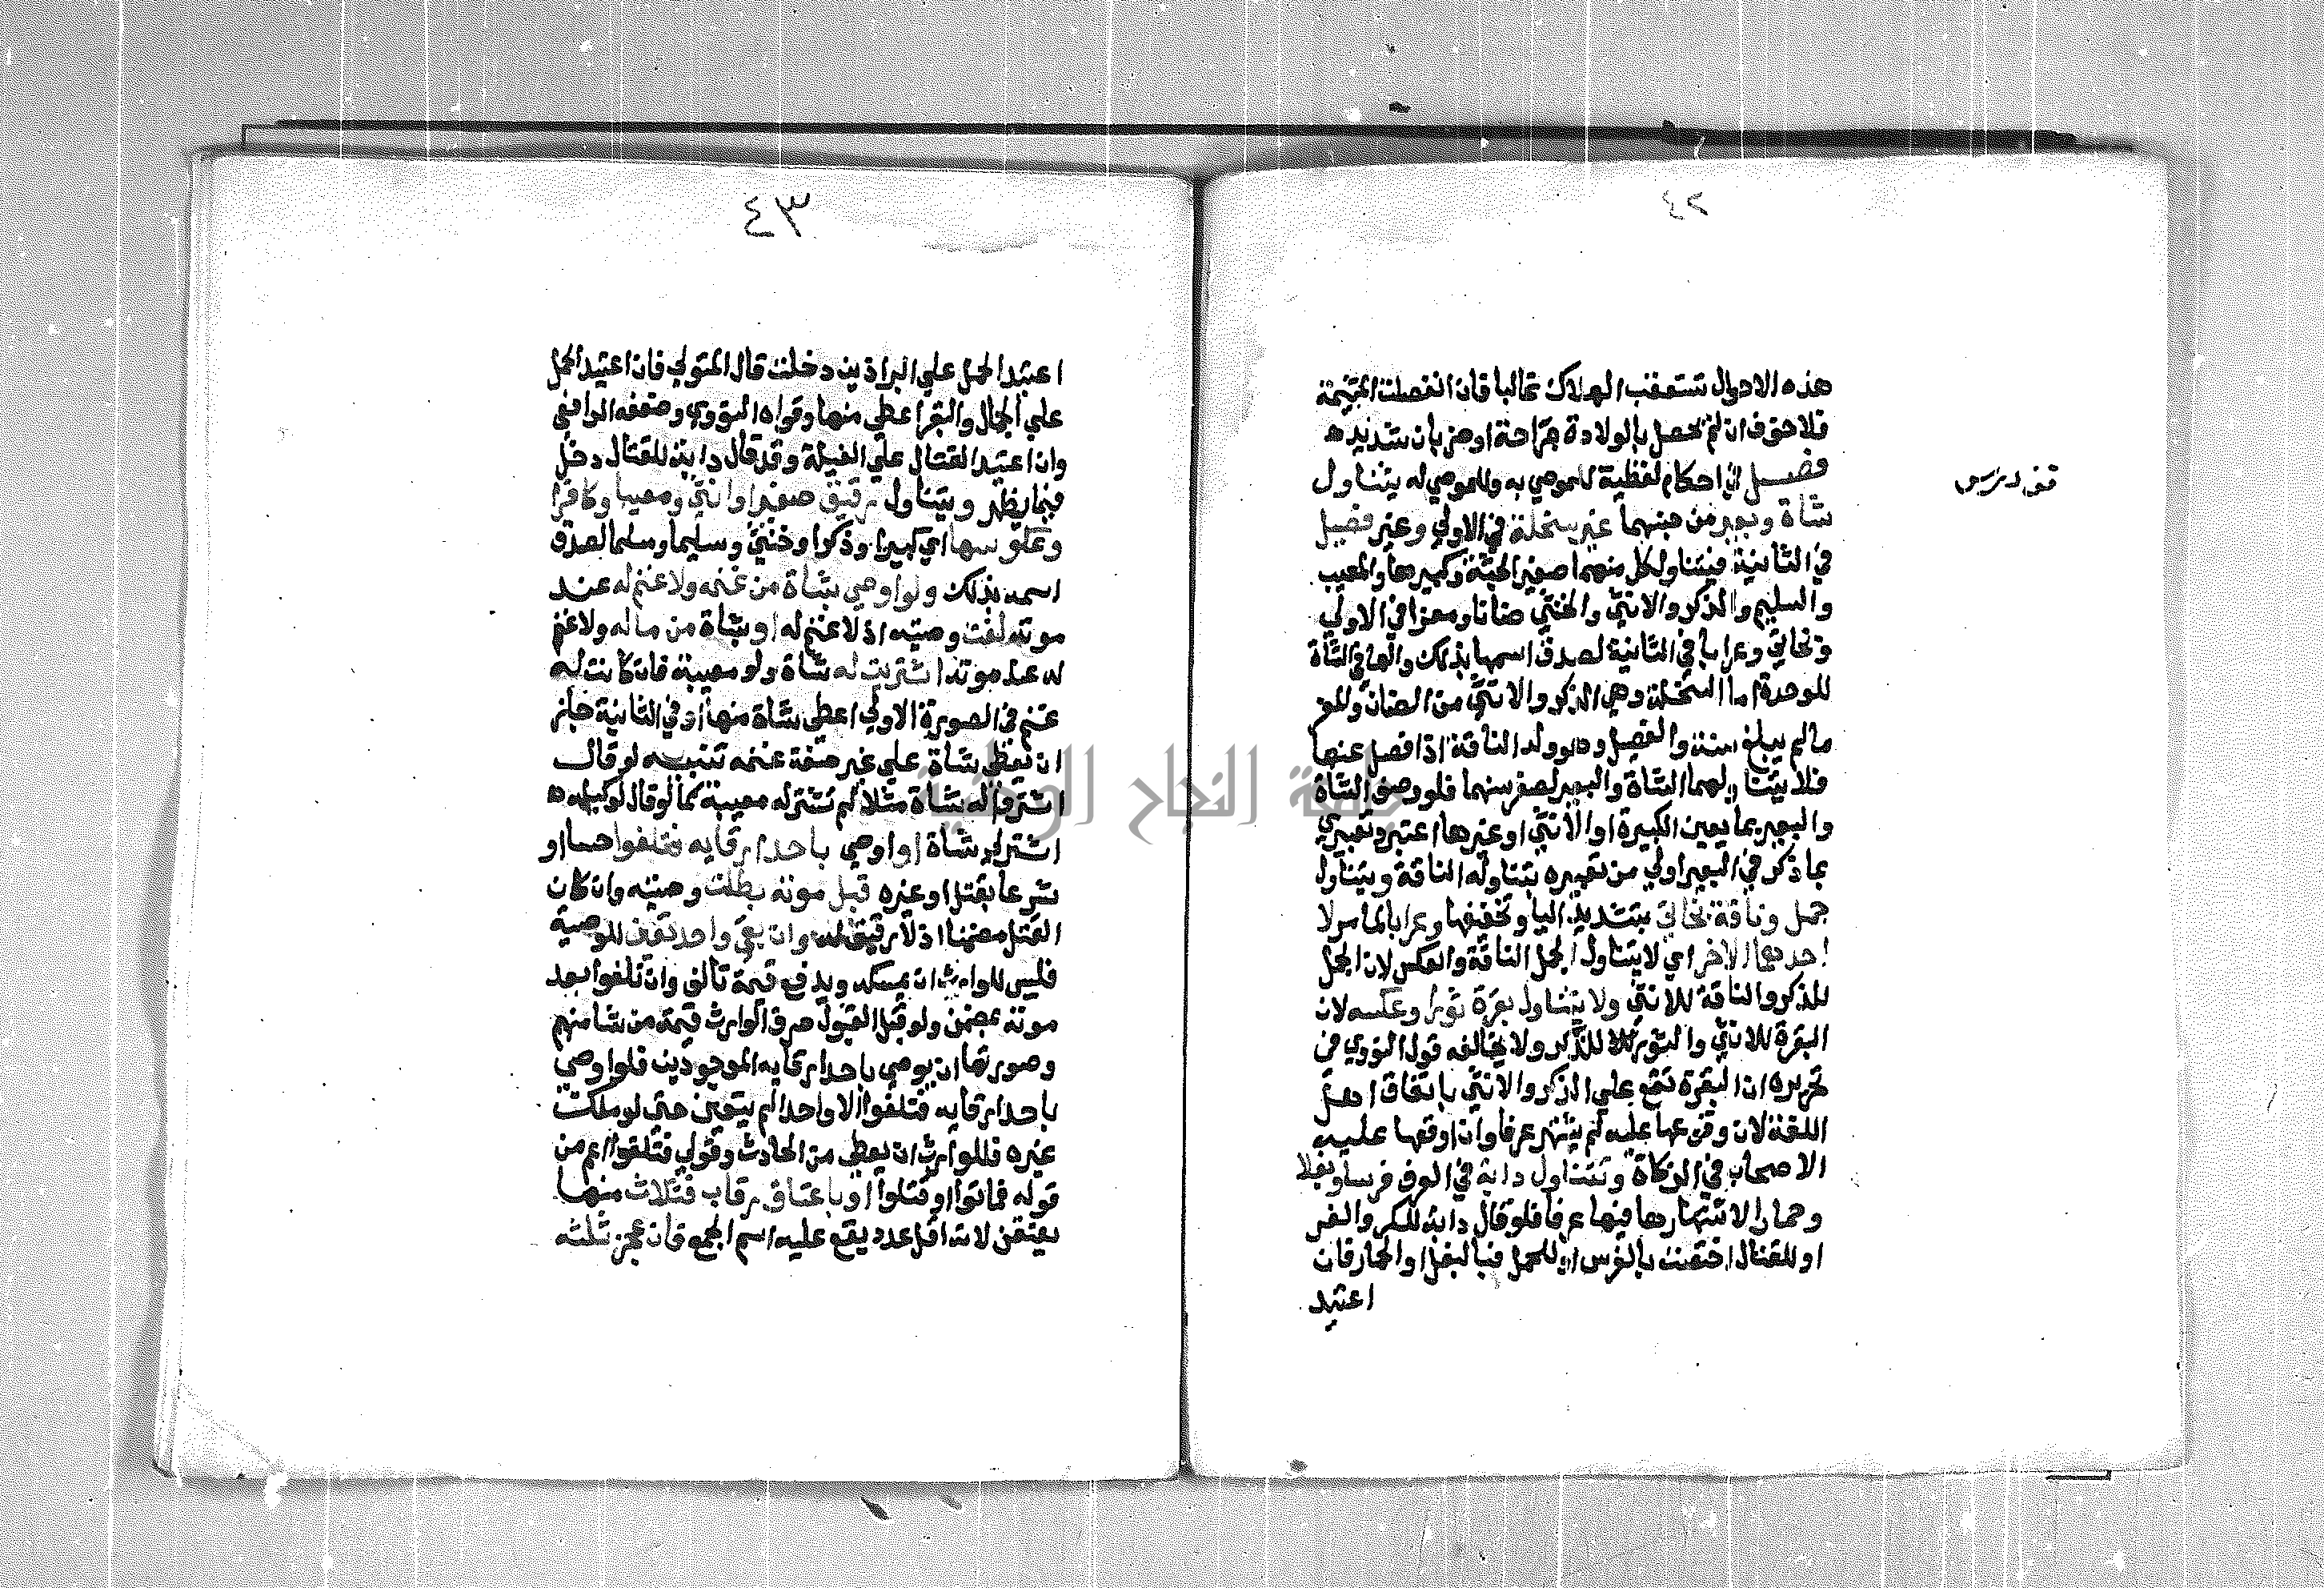 ٤٢
هذه الاحوال تستعقب الهلاك غالبا فان انفصلت المشيمة
فلا خوف ان لم يحصل بالولادة جراحة او ضربان شديد ه
فصل في احكام لفظية للموصي به وللموصي له يتناول
شاة وبعير من جنسهما غير سخلة في الاولي وغير فصيل
في الثانية فيتناول كل منهما صغير الجثة وكبيرها والمعيب
والسليم والذكر والانثي والخنثي ضانا ومعزا في الاولي
وبخاتي وعرابا في الثانية لصدق اسمها بذلك والها في الشاة
للوحدة اما السخلة وهي الذكر والانثي من الضان والمعز
ما لم يبلغ سنة والفصيل وهو ولد الناقة اذا فصل عنها
فلا يتناولهما الشاة والبعير لصغر سنهما فلو وصف الشاة
والبعير بما يعين الكبيرة او الانثي او غيرها اعتبر وتعبيري
بما ذكر في البعير اولي من تعبيره بتناوله الناقة ويتناول
جمل وناقة بخاتي بتشديد اليا وتخفيفها وعرابا لما مر لا
احدهما الاخر اي لا يتناول الجمل الناقة والعكس لان الجمل
للذكر والناقة للانثي ولا يتناول بقرة ثورا وعكسه لان
البقرة للانثي والثور للذكر ولا يخالفه قول النووي في
تحريره ان البقرة تقع علي الذكر والانثي باتفاق اهل
اللغة لان وقوعها عليه لم يشتهر عرفا وان اوقعها عليه
الاصحاب في الزكاة وتتناول دابة في العرف فرسا وبغلا
وحمارا لاشتهارها فيها عرفا فلو قال دابة للكر والفر
او للقتال اختصت بالفرس او للحمل فبالبغل او الحمار فان
اعتيد
٤٣
اعتيد الحمل علي البراذين دخلت قال المتولي فان اعتيد الحمل
علي الجمال والبقر اعطي منها وقواه النووي وضعفه الرافعي
وان اعتيد القتال علي الفيلة وقد قال دابة للقتال دخل
فيما يظهر ويتناول رقيق صغيرا وانثي ومعيبا وكافرا
وعكوسها اي كبيرا وذكرا وخنثي وسليما ومسلما لصدق
اسمه بذلك ولو اوصي بشاة من غنمه ولا غنم له عند
موته لغت وصيته اذ لا غنم له او بشاة من ماله ولا غنم
له عند موته اشتريت له شاة ولو معيبة فان كانت له
غنم في الصورة الاولي اعطي شاة منها او في الثانية جاز
ان يعطي شاة علي غير صفة غنمه تنبيه لو قال
اشتروا له شاة مثلا لم تشتر له معيبة كما لو قال لوكيله ه
اشتر لي شاة او اوصي باحد ارقايه فتلفوا حسا او
شرعا بقتل او غيره قبل موته بطلت وصيته وان كان
القتل مضمنا اذ لا رقيق له وان بقي واحد تعين للوصية
فليس للوارث ان يمسكه ويدفع قيمة تالف وان تلفوا بعد
موته بمضمن ولو قبل القبول صرف الوارث قيمة من شا منهم
وصورتها ان يوصي باحد ارقايه الموجودين فلو اوصي
باحد ارقايه فتلفوا الا واحدا لم يتعين حتي لو ملك
غيره فللوارث ان يعطي من الحادث وقولي فتلفوا اعم من
قوله فماتوا او قتلوا او باعتاق رقاب فثلاث منها
يعتقن لانه اقل عدد يقع عليه اسم الجمع فان عجز ثلثه
جامعة النجاح الوطنية